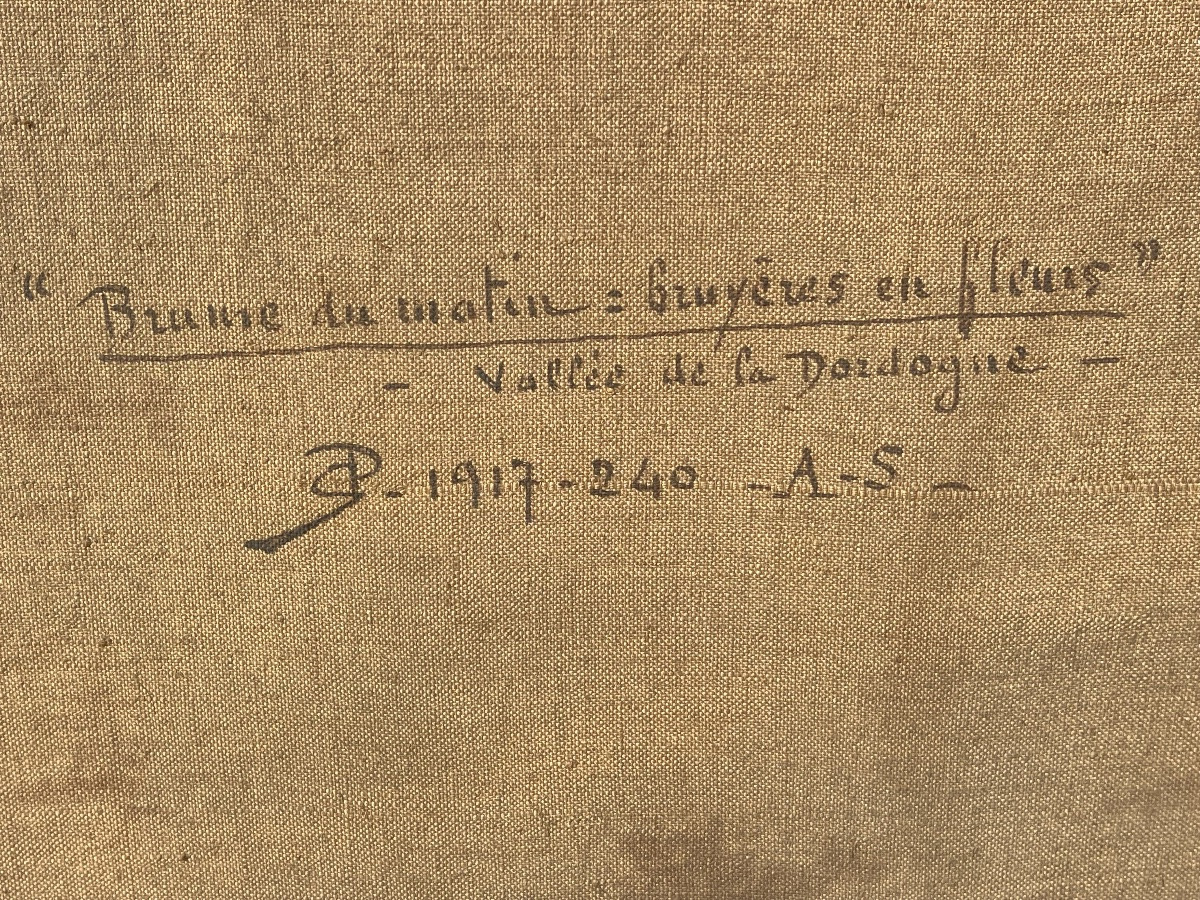 “Brume du matin = bruyères en fleurs”
- Vallée de la Dordogne -
- 1917 - 240 - A - S -